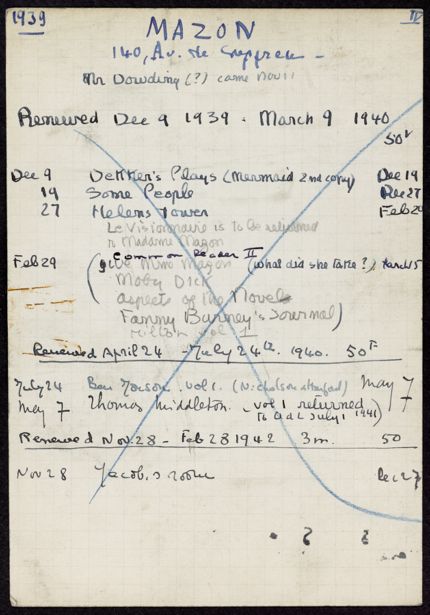 1939 IV
MAZON
140, Av. de
Mr Dowding (?) came Nov 11
Renewed Dec 9 1939 - March 9 1940
50f
Dec 9 Dekker's Plays (Mermaid 2nd copy) Dec 19
19 Some People Dec 27
27 Helen's Tower Feb 29
Le Visionnaire is to be returned
to Madame Mazon
Feb 29 (give Mme Mazon Common Reader II (what did she take?) March 15
Moby Dick
Aspects of the Novel
Fanny Burney's Journal)
Milton vol 1
Renewed April 24 - July 24th. 1940. 50F
July 24 Ben Jonson. vol 1. (Nicholson) May 7
May 7 Thomas Middleton. vol 1 returned
July 1 1941)
Renewed Nov. 28 - Feb 28 1942 3m. 50
Nov 28 Jacob's room Dec 27
? ?